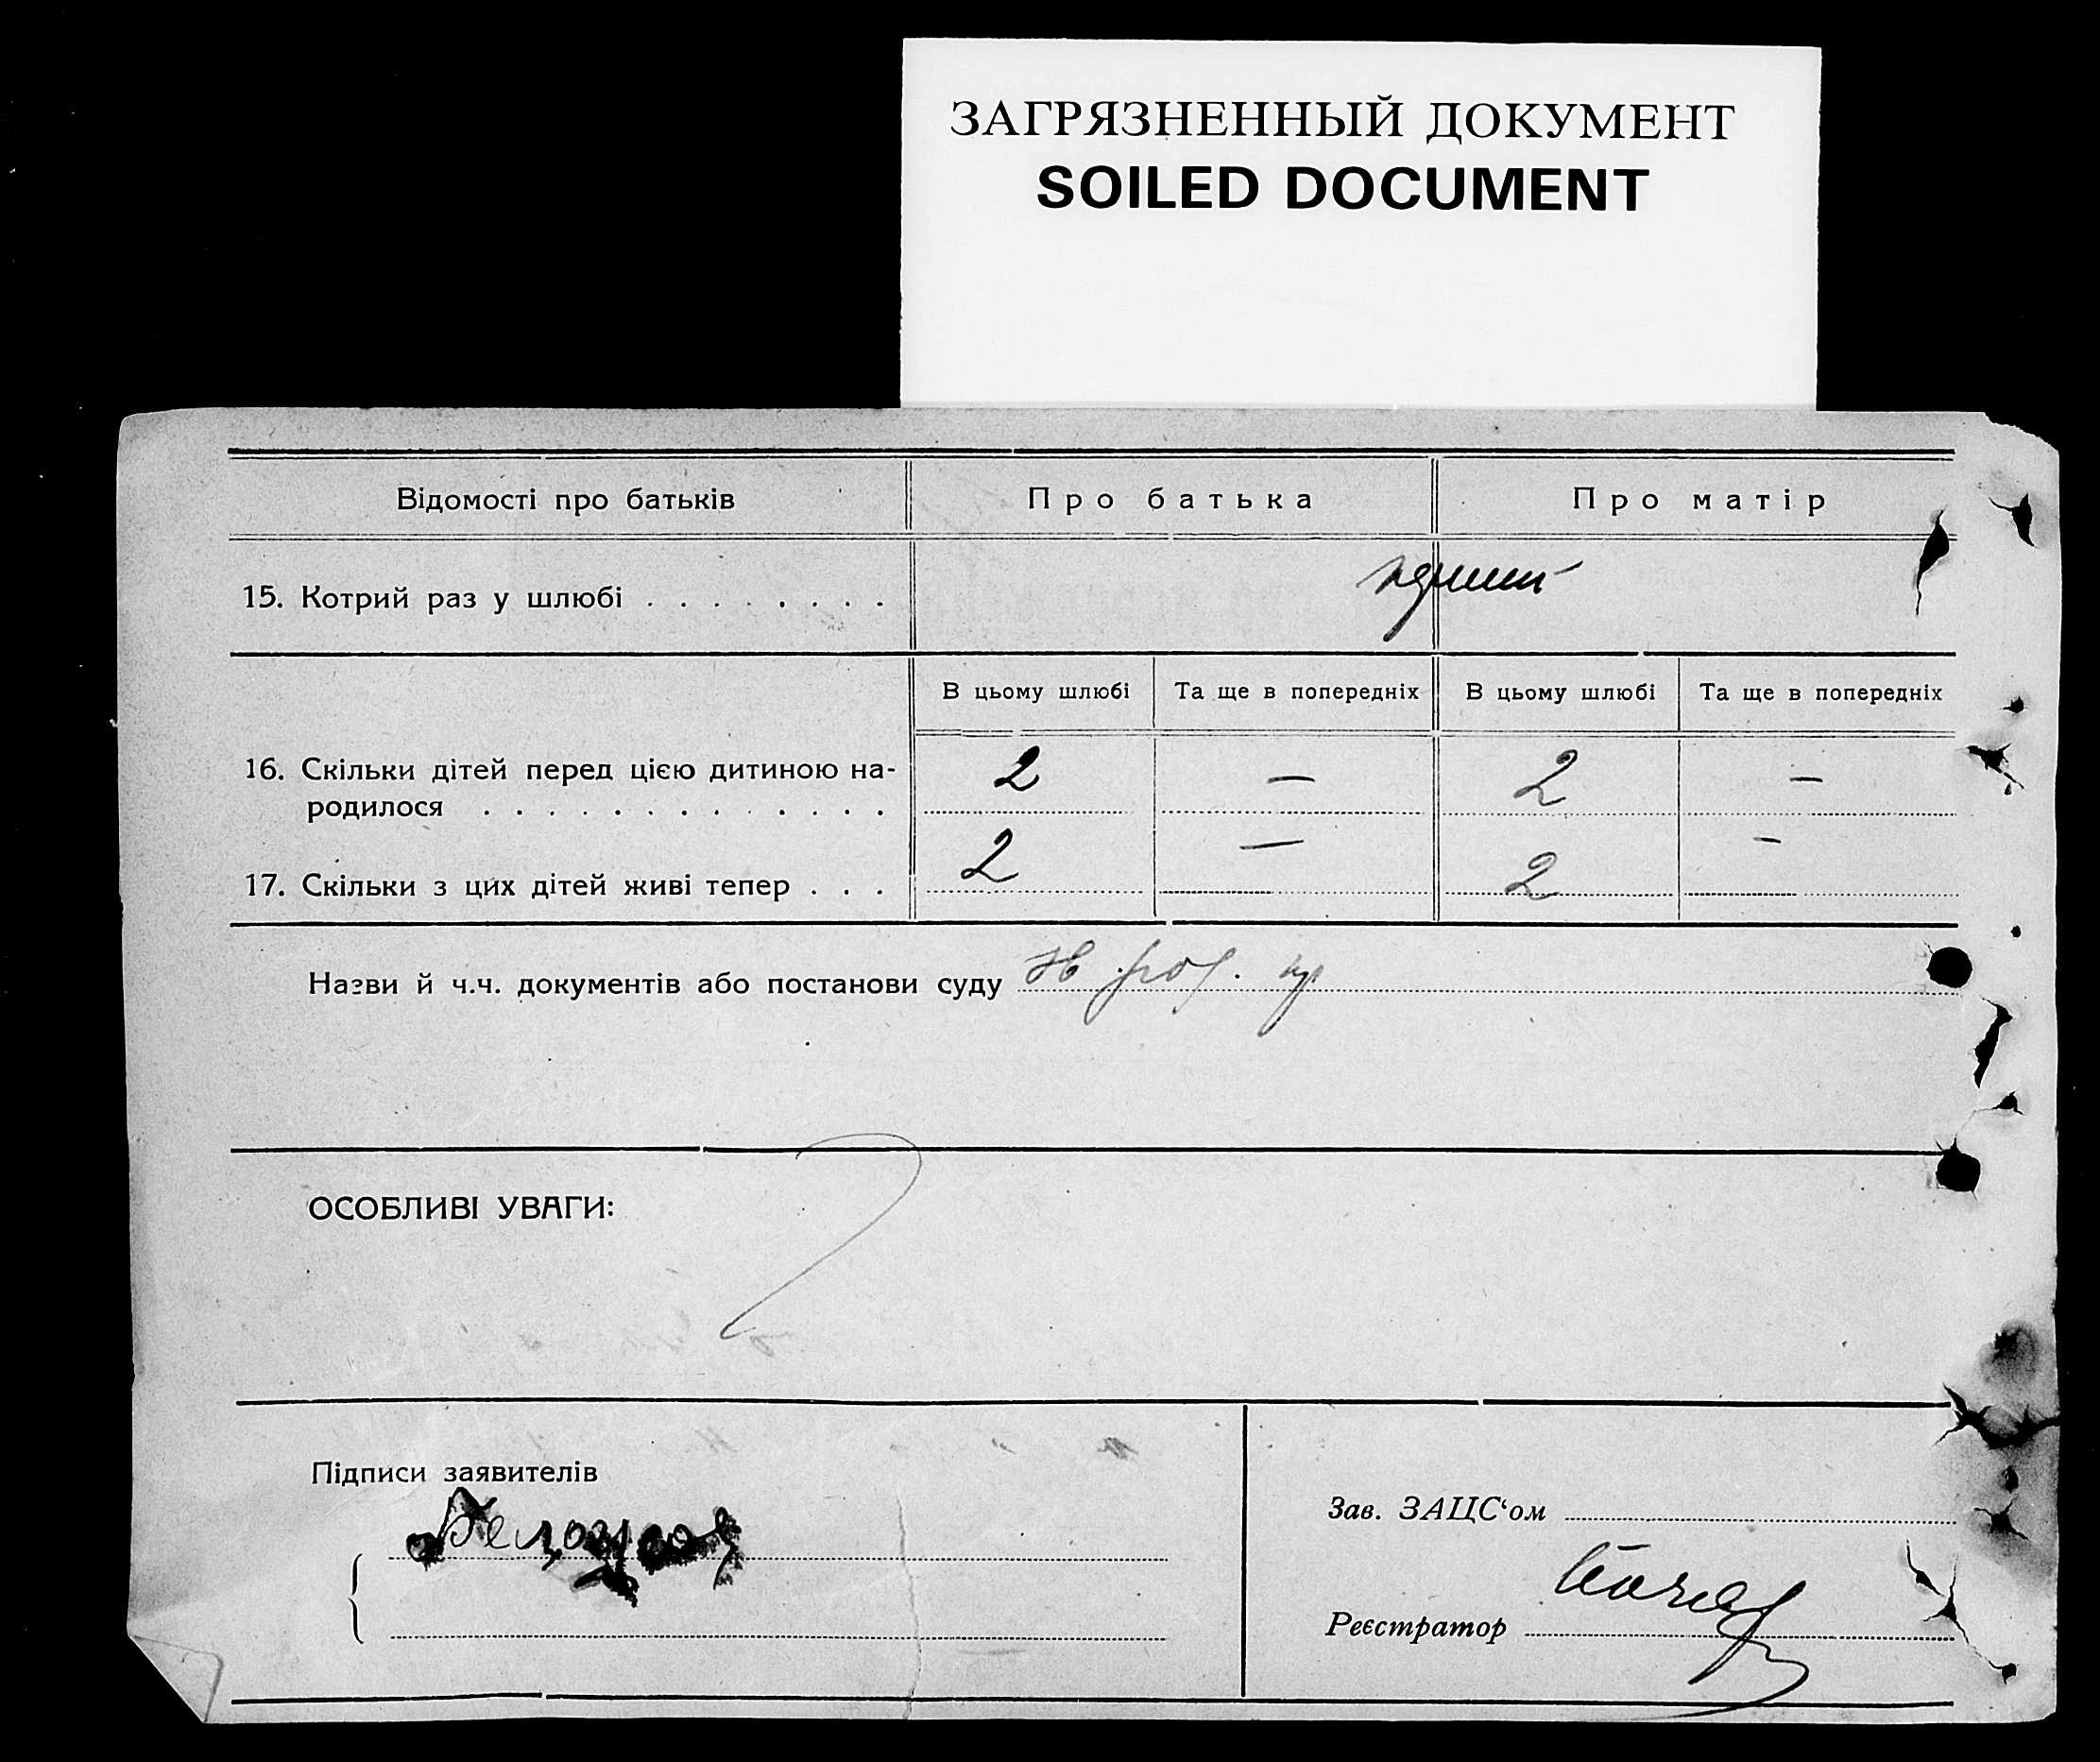 ЗАГРЯЗНЕННЫЙ ДОКУМЕНТ
SOILED DOCUMENT
Відомості про батьків Про батька Про матір
15. Котрий раз у шлюбі . . . . . . . .
В цьому шлюбі Та ще в попередніх В цьому шлюбі Та ще в попередніх
16. Скільки дітей перед цією дитиною на-
родилося . . . . . . . . . . . . . 2 — 2 —
17. Скільки з цих дітей живі тепер . . . 2 — 2 —
Назви й ч.ч. документів або постанови суду
ОСОБЛИВІ УВАГИ:
Підписи заявителів
Зав. ЗАЦС‘ом
Реєстратор